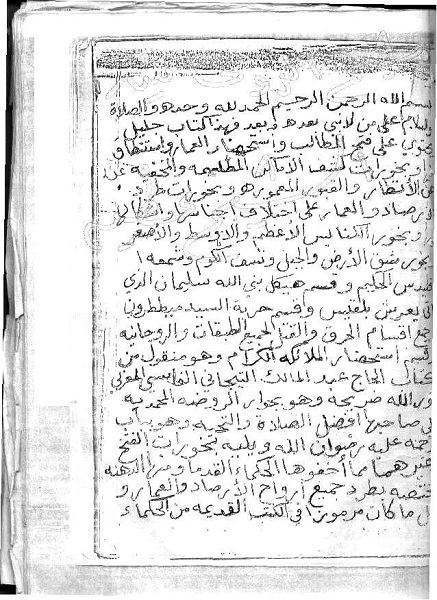 بسم الله الرحمن الرحيم الحمد لله وحده والصلاة
والسلام على من لا نبي بعده وبعد فهذا كتاب جليل
يحتوي على فتح المطالب واستحضار العمار واستنطاق
وبخورات كشف الأماكن المطلسمه والمخفية عن
عن الأنظار والقبور المعموره وبخورات طرد
الأرصاد والعمار على اختلاف اجناسها واشكالها
وبخور الكنابيس الأعظم والأوسط والأصغر
وبخور شق الأرض والجبل وكشف الكوم وشمعة
الحكيم وقسم هيكل نبي الله سليمان الذي
بعرش بلقيس وقسم حربة السيد ميططرون
جميع اقسام الحرق والقتل لجميع الطبقات والروحانيه
وقسم استحضار الملائكه الكرام وهو منقول من
كتاب الحاج عبد المالك التجاني الفاسي المغربي
نور الله ضريحه وهو بجوار الروضه المحمديه
على صاحبها افضل الصلاة والتحيه وهو باب
عليه رضوان الله ويليه بخورات الفتح
وغيرهما مما أخفوها الحكماء القدما ومنها الدهنه
بطرد جميع أرواح الأرصاد والعمار و
ما كان مرموزا في الكتب القديمه من الحكماء